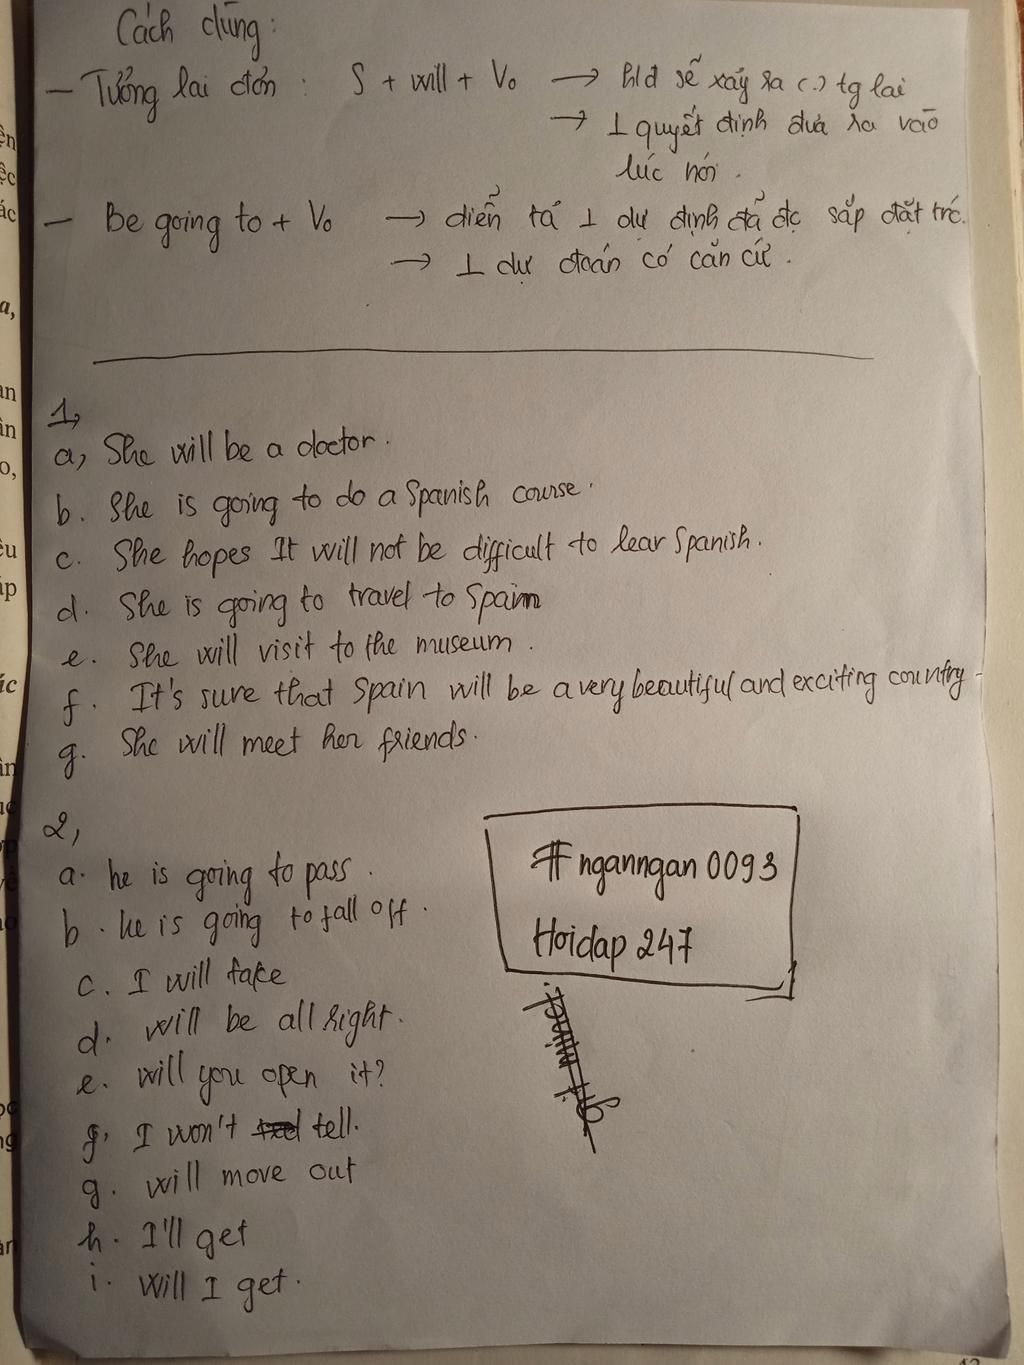 Cách dùng:
– Tương lai đơn : S + will + V₀ → hđ sẽ xảy ra (.) tg lai
→ ⊥ quyết định đưa ra vào
lúc nói.
– Be going to + V₀ → diễn tả ⊥ dự định đã đc sắp đặt trc.
→ ⊥ dự đoán có căn cứ.
1,
a, She will be a doctor.
b. She is going to do a Spanish course.
c. She hopes It will not be difficult to lear Spanish.
d. She is going to travel to Spain
e. She will visit to the museum.
f. It's sure that Spain will be a very beautiful and exciting country
g. She will meet her friends.
2,
a. he is going to pass.
b. he is going to fall off.
c. I will take
d. will be all right.
e. will you open it?
g. I won't tell.
g. will move out
h. I'll get
i. will I get.
# nganngan 0093
Hoidap 247